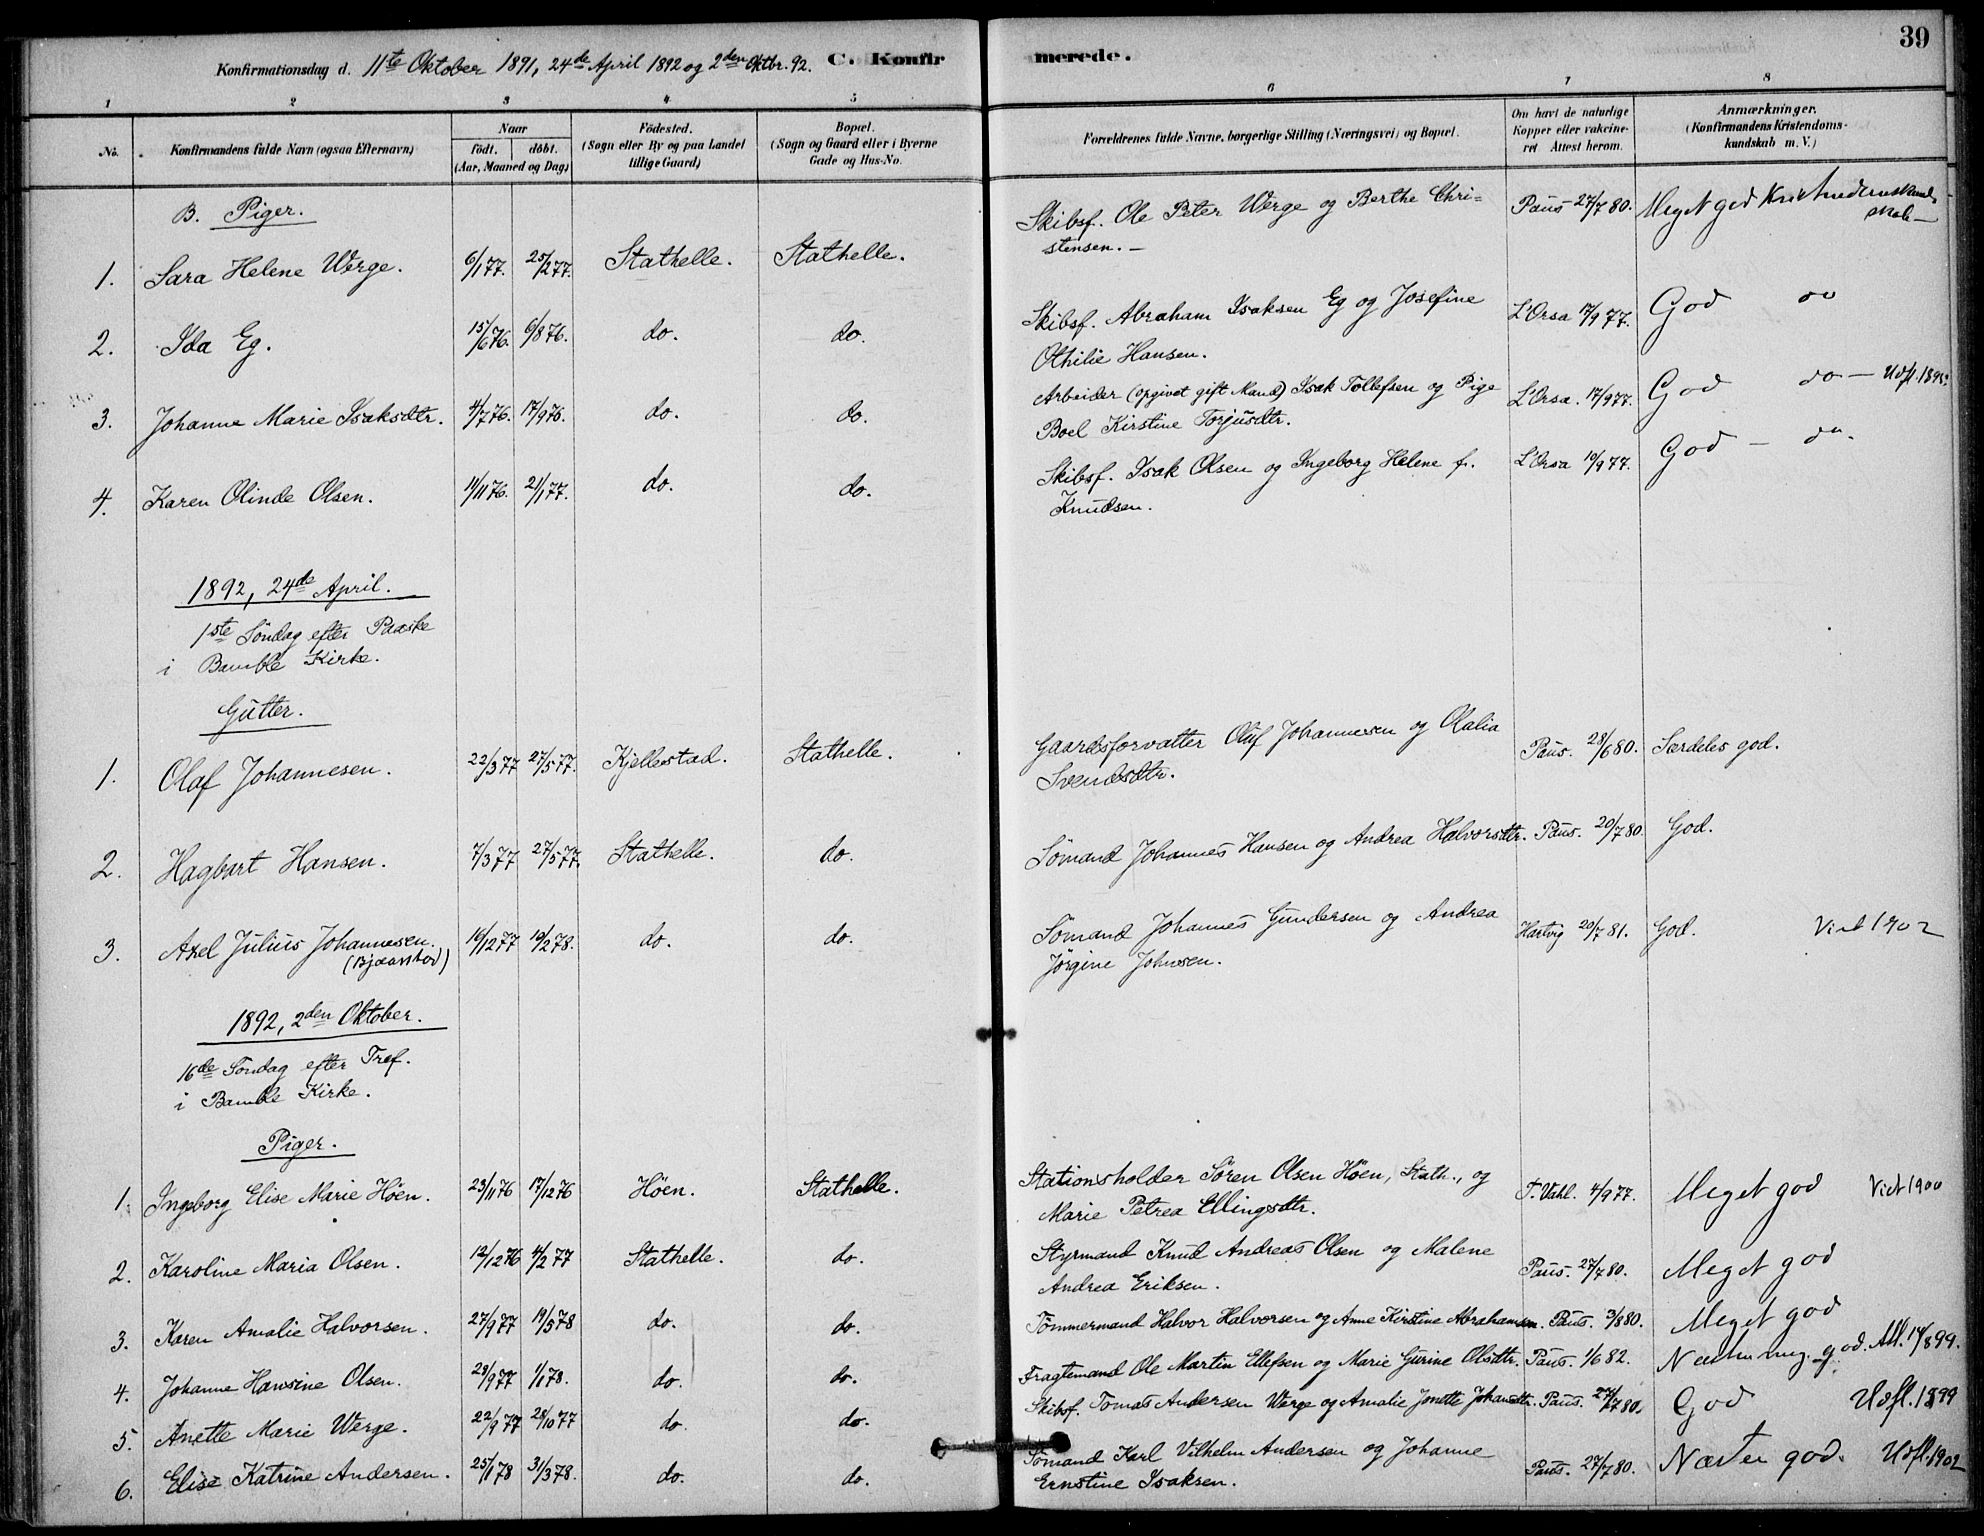 39
Konfirmationsdag d. 11te Oktober 1891, 24de April 1892 og 2den Oktbr. 92. C. Konfirmerede.
1 2 3 4 5 6 7 8
No. Konfirmandens fulde Navn (ogsaa Efternavn) Naar født. døbt. (Aar, Maaned og Dag) Födested. (Sogn eller By og paa Landet tillige Gaard) Bopæl. (Sogn og Gaard eller i Byerne Gade og Hus-No. Forældrenes fulde Navne, borgerlige Stilling (Næringsvei) og Bopæl. Om havt de naturlige Kopper eller vakcineret Attest herom. Anmærkninger. (Konfirmandens Kristendomskundskab m. V.)
B. Piger.
1. Sara Helene Werge. 6/1 77. 25/2 77. Stathelle. Stathelle. Skibsf. Ole Peter Werge og Berthe Christensen. — Paus 27/7 80. Meget god
2. Ida Eg. 15/6 76. 6/8 76. do. do. Skibsf. Abraham Isaksen Eg og Josefine Othilie Hansen. L'Orsa 17/9 77. God do
3. Johanne Marie Isaksdtr. 4/7 76. 17/9 76. do. do. Arbeider (opgivet gift Mand) Isak Tollefsen og Pige Boel Kirstine Torjusdtr. L'Orsa. 17/9 77. God do —
4. Karen Olinde Olsen. 11/11 76. 21/1 77. do. do. Skibsf. Isak Olsen og Ingeborg Helene f. Knudsen. L'Orsa 10/9 77. God — do.
1892, 24de April.
1ste Søndag efter Paaske
i Bamble Kirke.
Gutter.
1. Olaf Johannesen. 22/3 77 27/5 77. Kjellestad. Stathelle. Gaardsforvalter Oluf Johannesen og Olalia Svendsdtr. Paus. 28/6 80. Særdeles god.
2. Hagbart Hansen. 7/3 77 27/5 77. Stathelle. do. Sømand Johannes Hansen og Andrea Halvorsdtr. Paus. 20/7 80. God.
3. Axel Julius Johannesen. 16/12 77 10/2 78. do. do. Sømand Johannes Gundersen og Andrea Jørgine Johnsen. Hartvig 20/7 81. God. Viet 1902
1892, 2den Oktober.
16de Søndag efter Tref.
i Bamble Kirke.
Piger.
1. Ingeborg Elise Marie Høen. 23/11 76 17/12 76 Høen. Stathelle. Stationsholder Søren Olsen Høen, Stath., og Marie Petrea Ellingsdtr. T. Vahl. 4/9 77. Meget god Viet 1900
2. Karoline Maria Olsen. 12/12 76 4/2 77 Stathelle. do. Styrmand Knud Andreas Olsen og Malene Andrea Eriksen. Paus. 27/7 80. Meget god
3. Karen Amalie Halvorsen. 27/9 77 19/5 78 do. do. Tømmermand Halvor Halvorsen og Anne Kirstine Abrahamsen. Paus. 3/8 80. Meget god
4. Johanne Hansine Olsen. 28/9 77 1/1 78. do. do. Fragtemand Ole Martin Ellefsen og Marie Gurine Olsdtr. Paus. 1/6 82. Næsten meg. god.
5. Anette Marie Werge. 22/9 77 28/10 77 do do. Skibsf. Tomas Andersen Werge og Amalie Jonette Johansdtr. Paus. 27/7 80. God Udfl. 1899
6. Elise Katrine Andersen. 25/1 78 31/3 78. do. do. Sømand Karl Vilhelm Andersen og Johanne Ernstine Isaksen. Paus. 27/7 80. Næsten god. Udfl. 1902